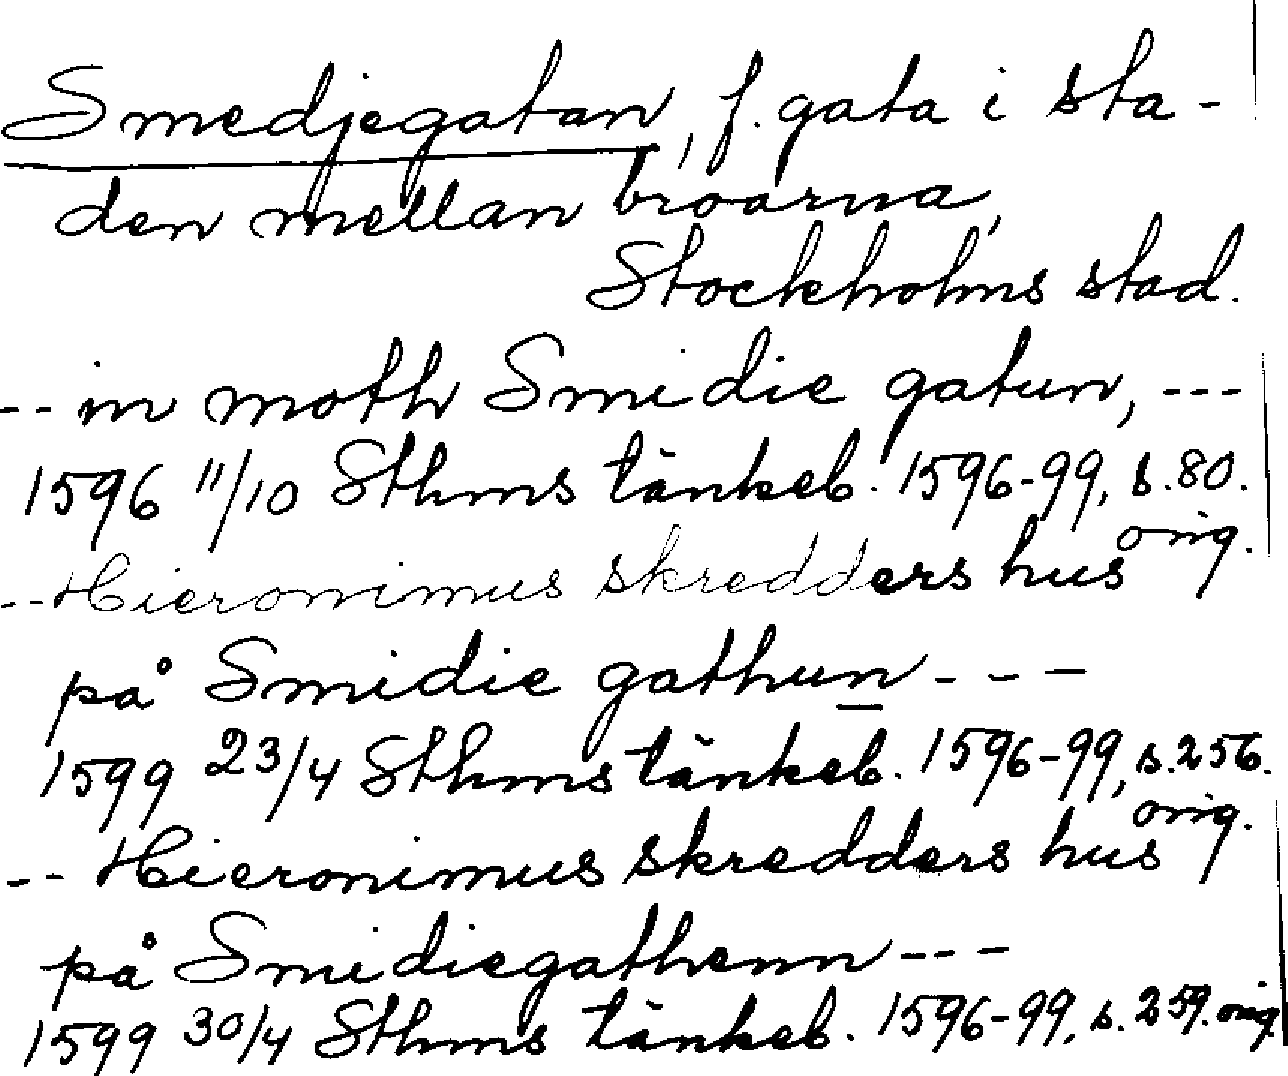 Smedjegatan, f. gata i sta-
den mellan broarna,
Stockholms stad.
-- in moth Smidie gatun, ---
1596 11/10 Sthms tänkeb. 1596-99, s. 80.
orig.
-- Hieronimus skredders hus
på Smidie gathun - - -
1599 23/4 Sthms tänkeb. 1596-99, s. 256.
orig.
-- Hieronimus skredders hus
på Smidiegathenn ---
1599 30/4 Sthms tänkeb. 1596-99, s. 259. orig.